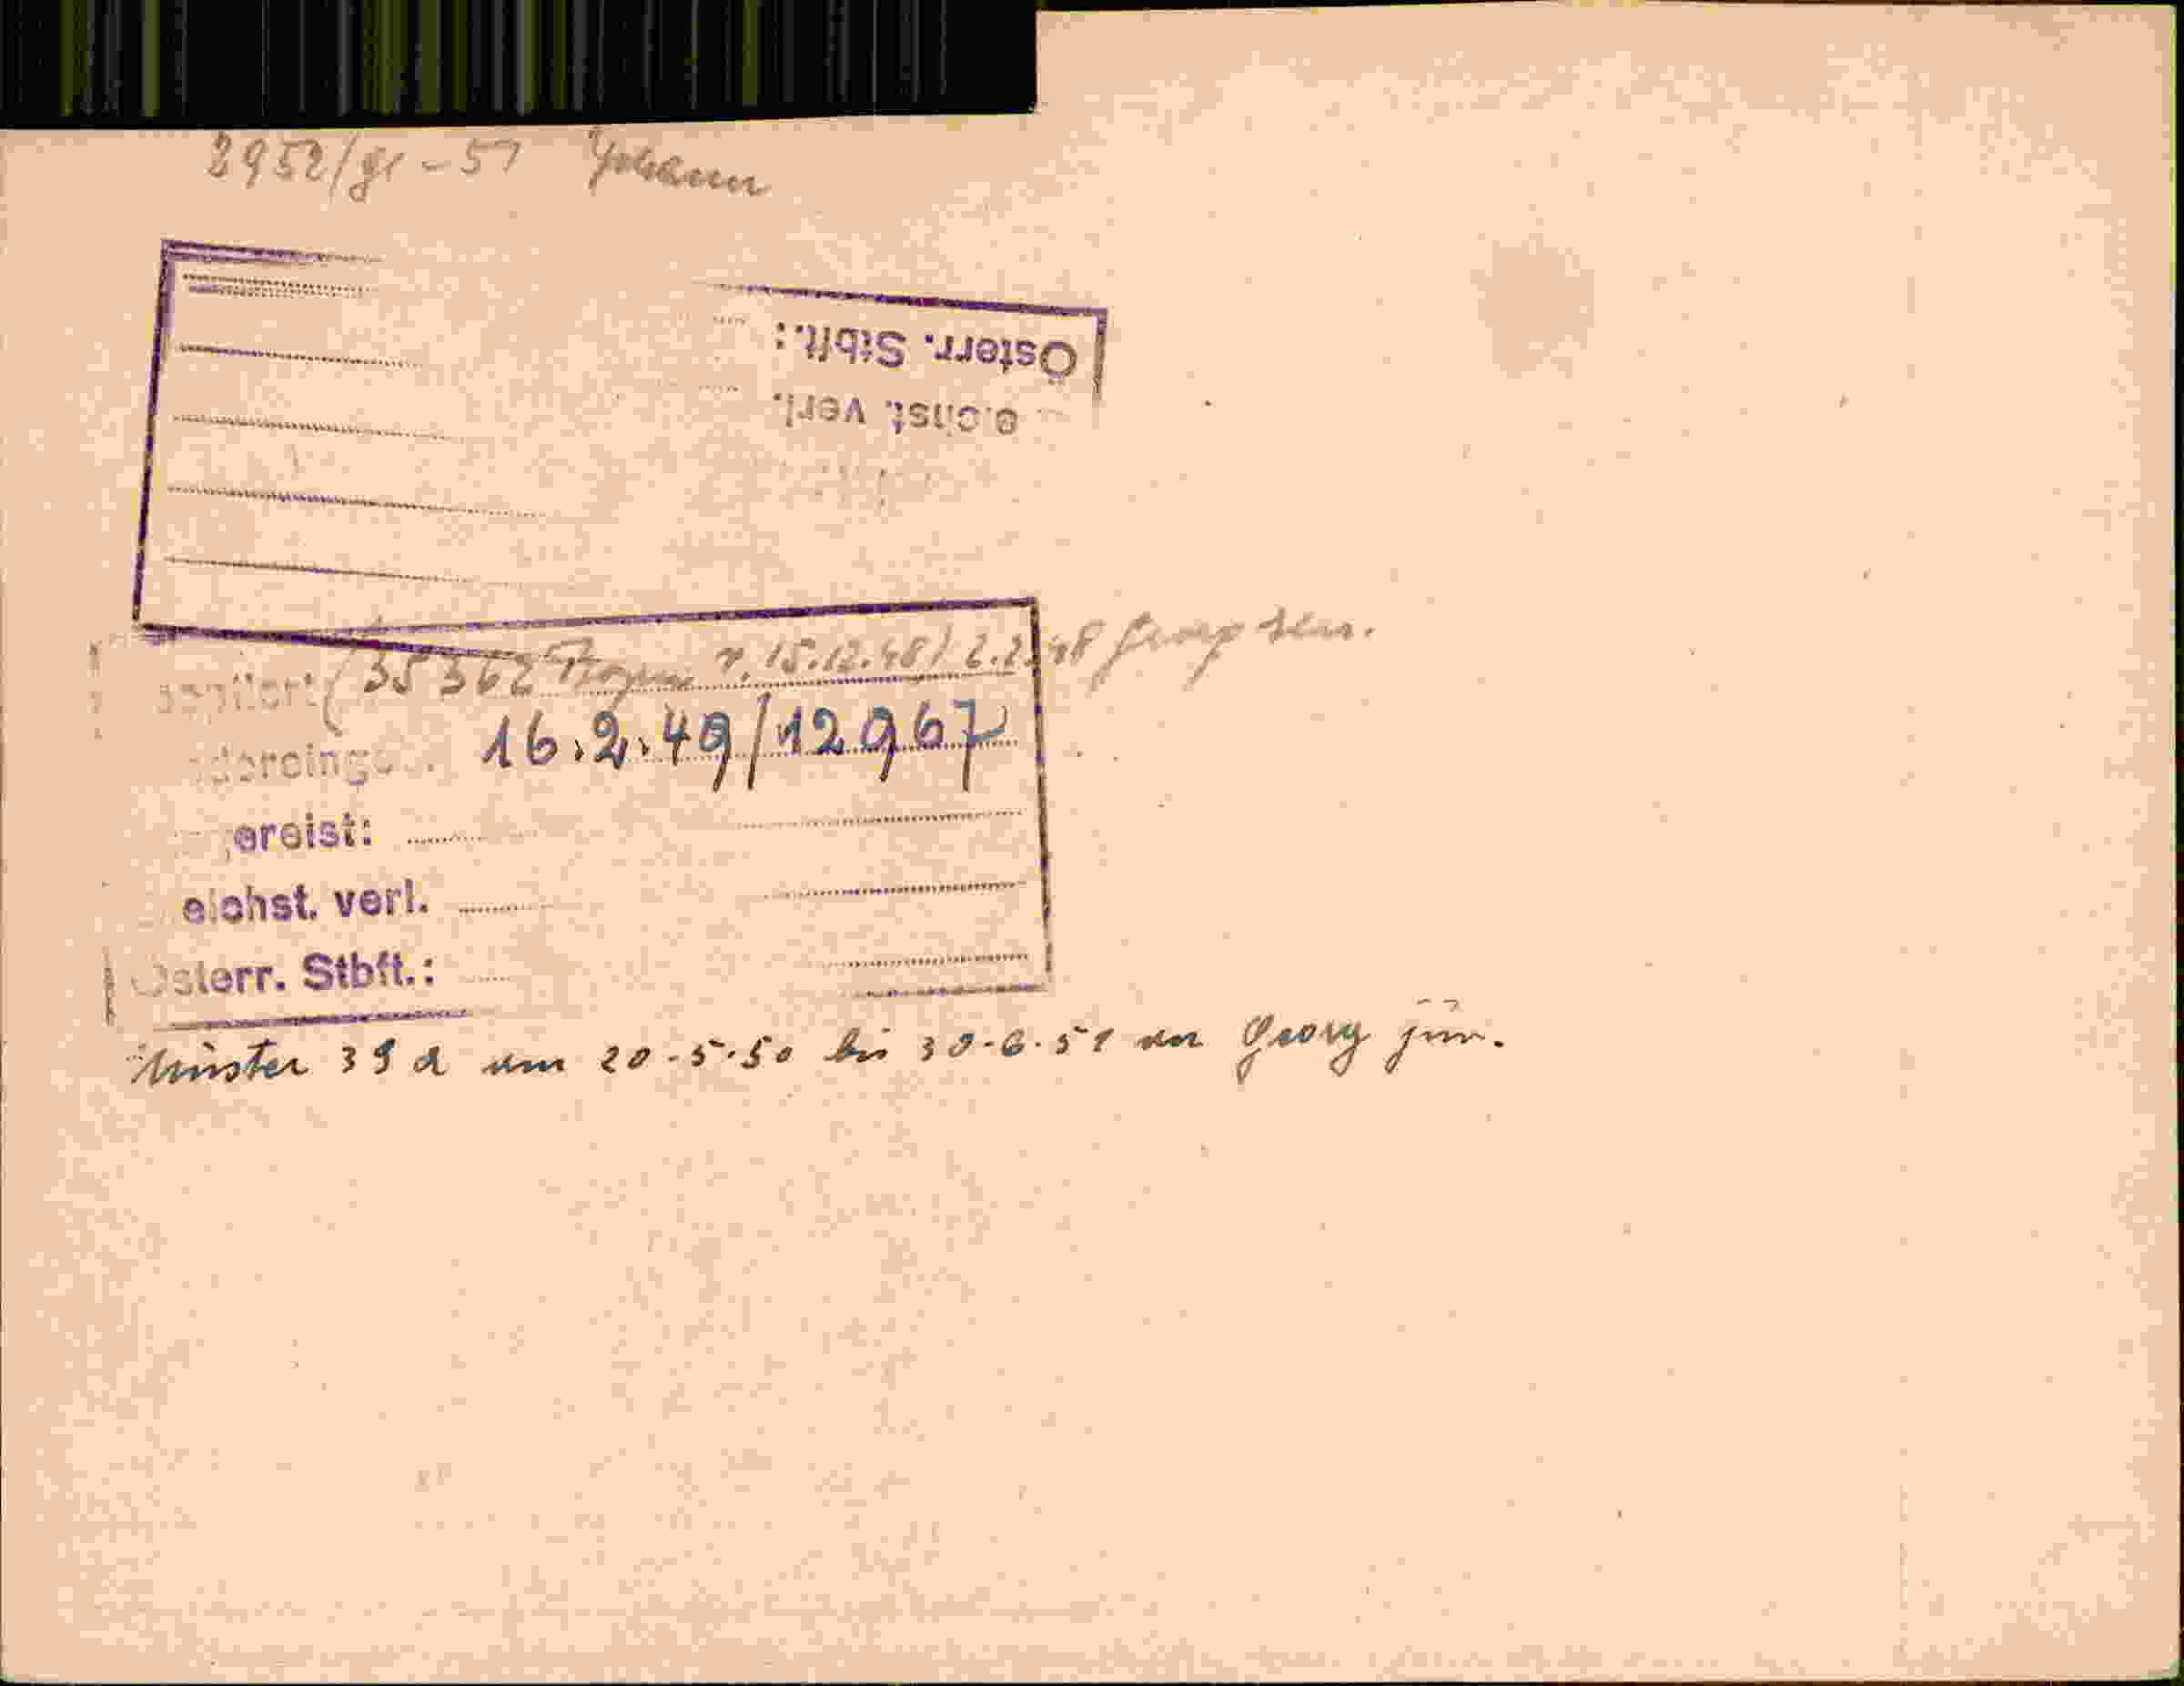 2952/gr - 51 Johann
Österr. Stbft.:
e.chst. verl.
(35362 v. 15.12.48) 2.2.48 Georg sen.
16.2.49/12967
ereist:
eichst. verl.
Österr. Stbft.:
Münster 39 a um 20.5.50 bis 30.6.51 an Georg jun.